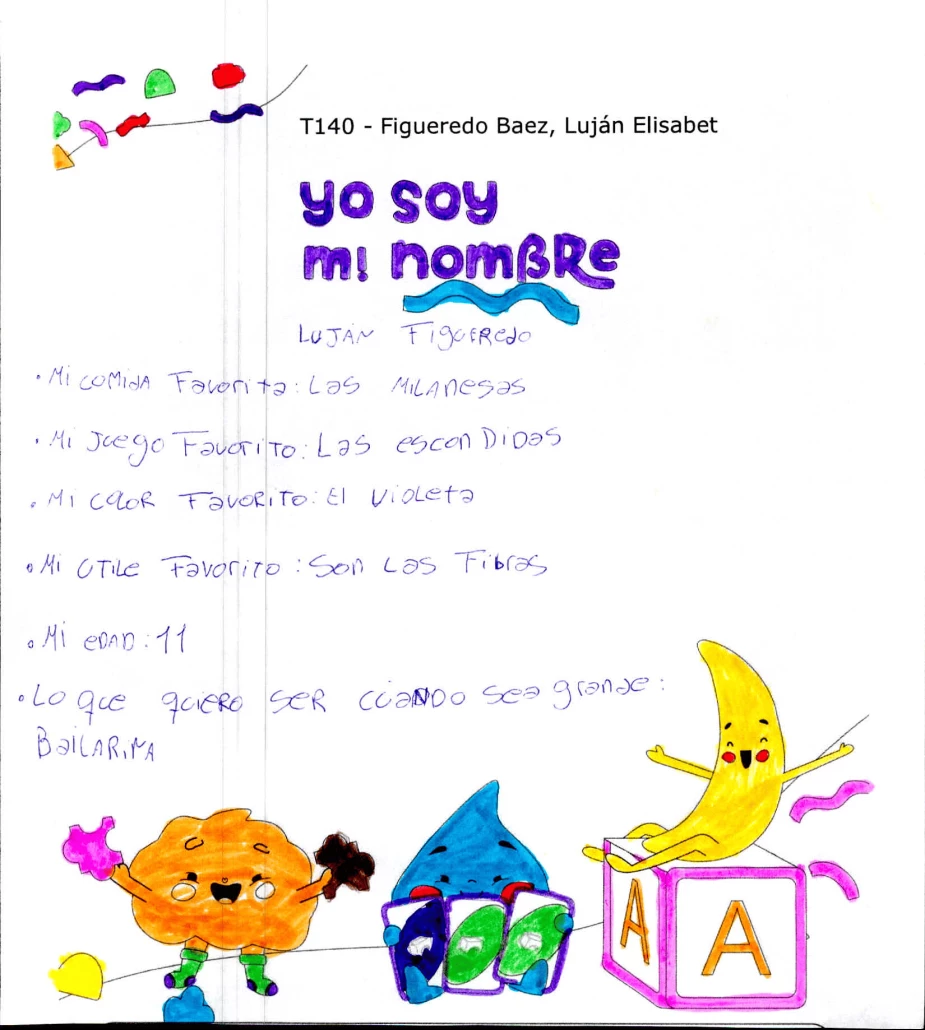 T140 - Figueredo Baez, Luján Elisabet
yo soy
mi nombre
Luján Figueredo
• Mi comida Favorita: Las milanesas
• Mi Juego Favorito: Las esconDiDas
• Mi color Favorito: El violeta
• Mi utile Favorito: Son las Fibras
• Mi edad: 11
• Lo que quiero ser cuando sea grande:
Bailarina
A A